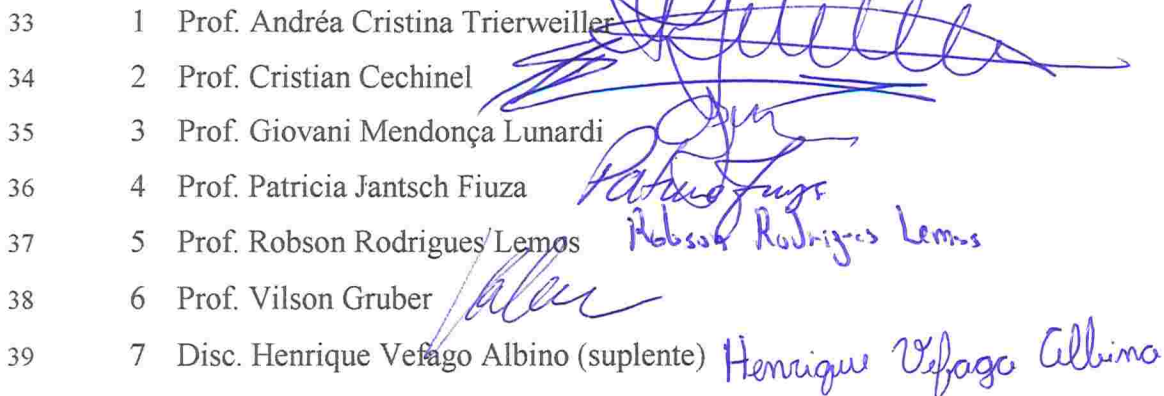 33 1 Prof. Andréa Cristina Trierweiller
34 2 Prof. Cristian Cechinel
35 3 Prof. Giovani Mendonça Lunardi
36 4 Prof. Patricia Jantsch Fiuza Patricia Fiuza
37 5 Prof. Robson Rodrigues Lemos Robson Rodrigues Lemos
38 6 Prof. Vilson Gruber
39 7 Disc. Henrique Vefago Albino (suplente) Henrique Vefago Albino